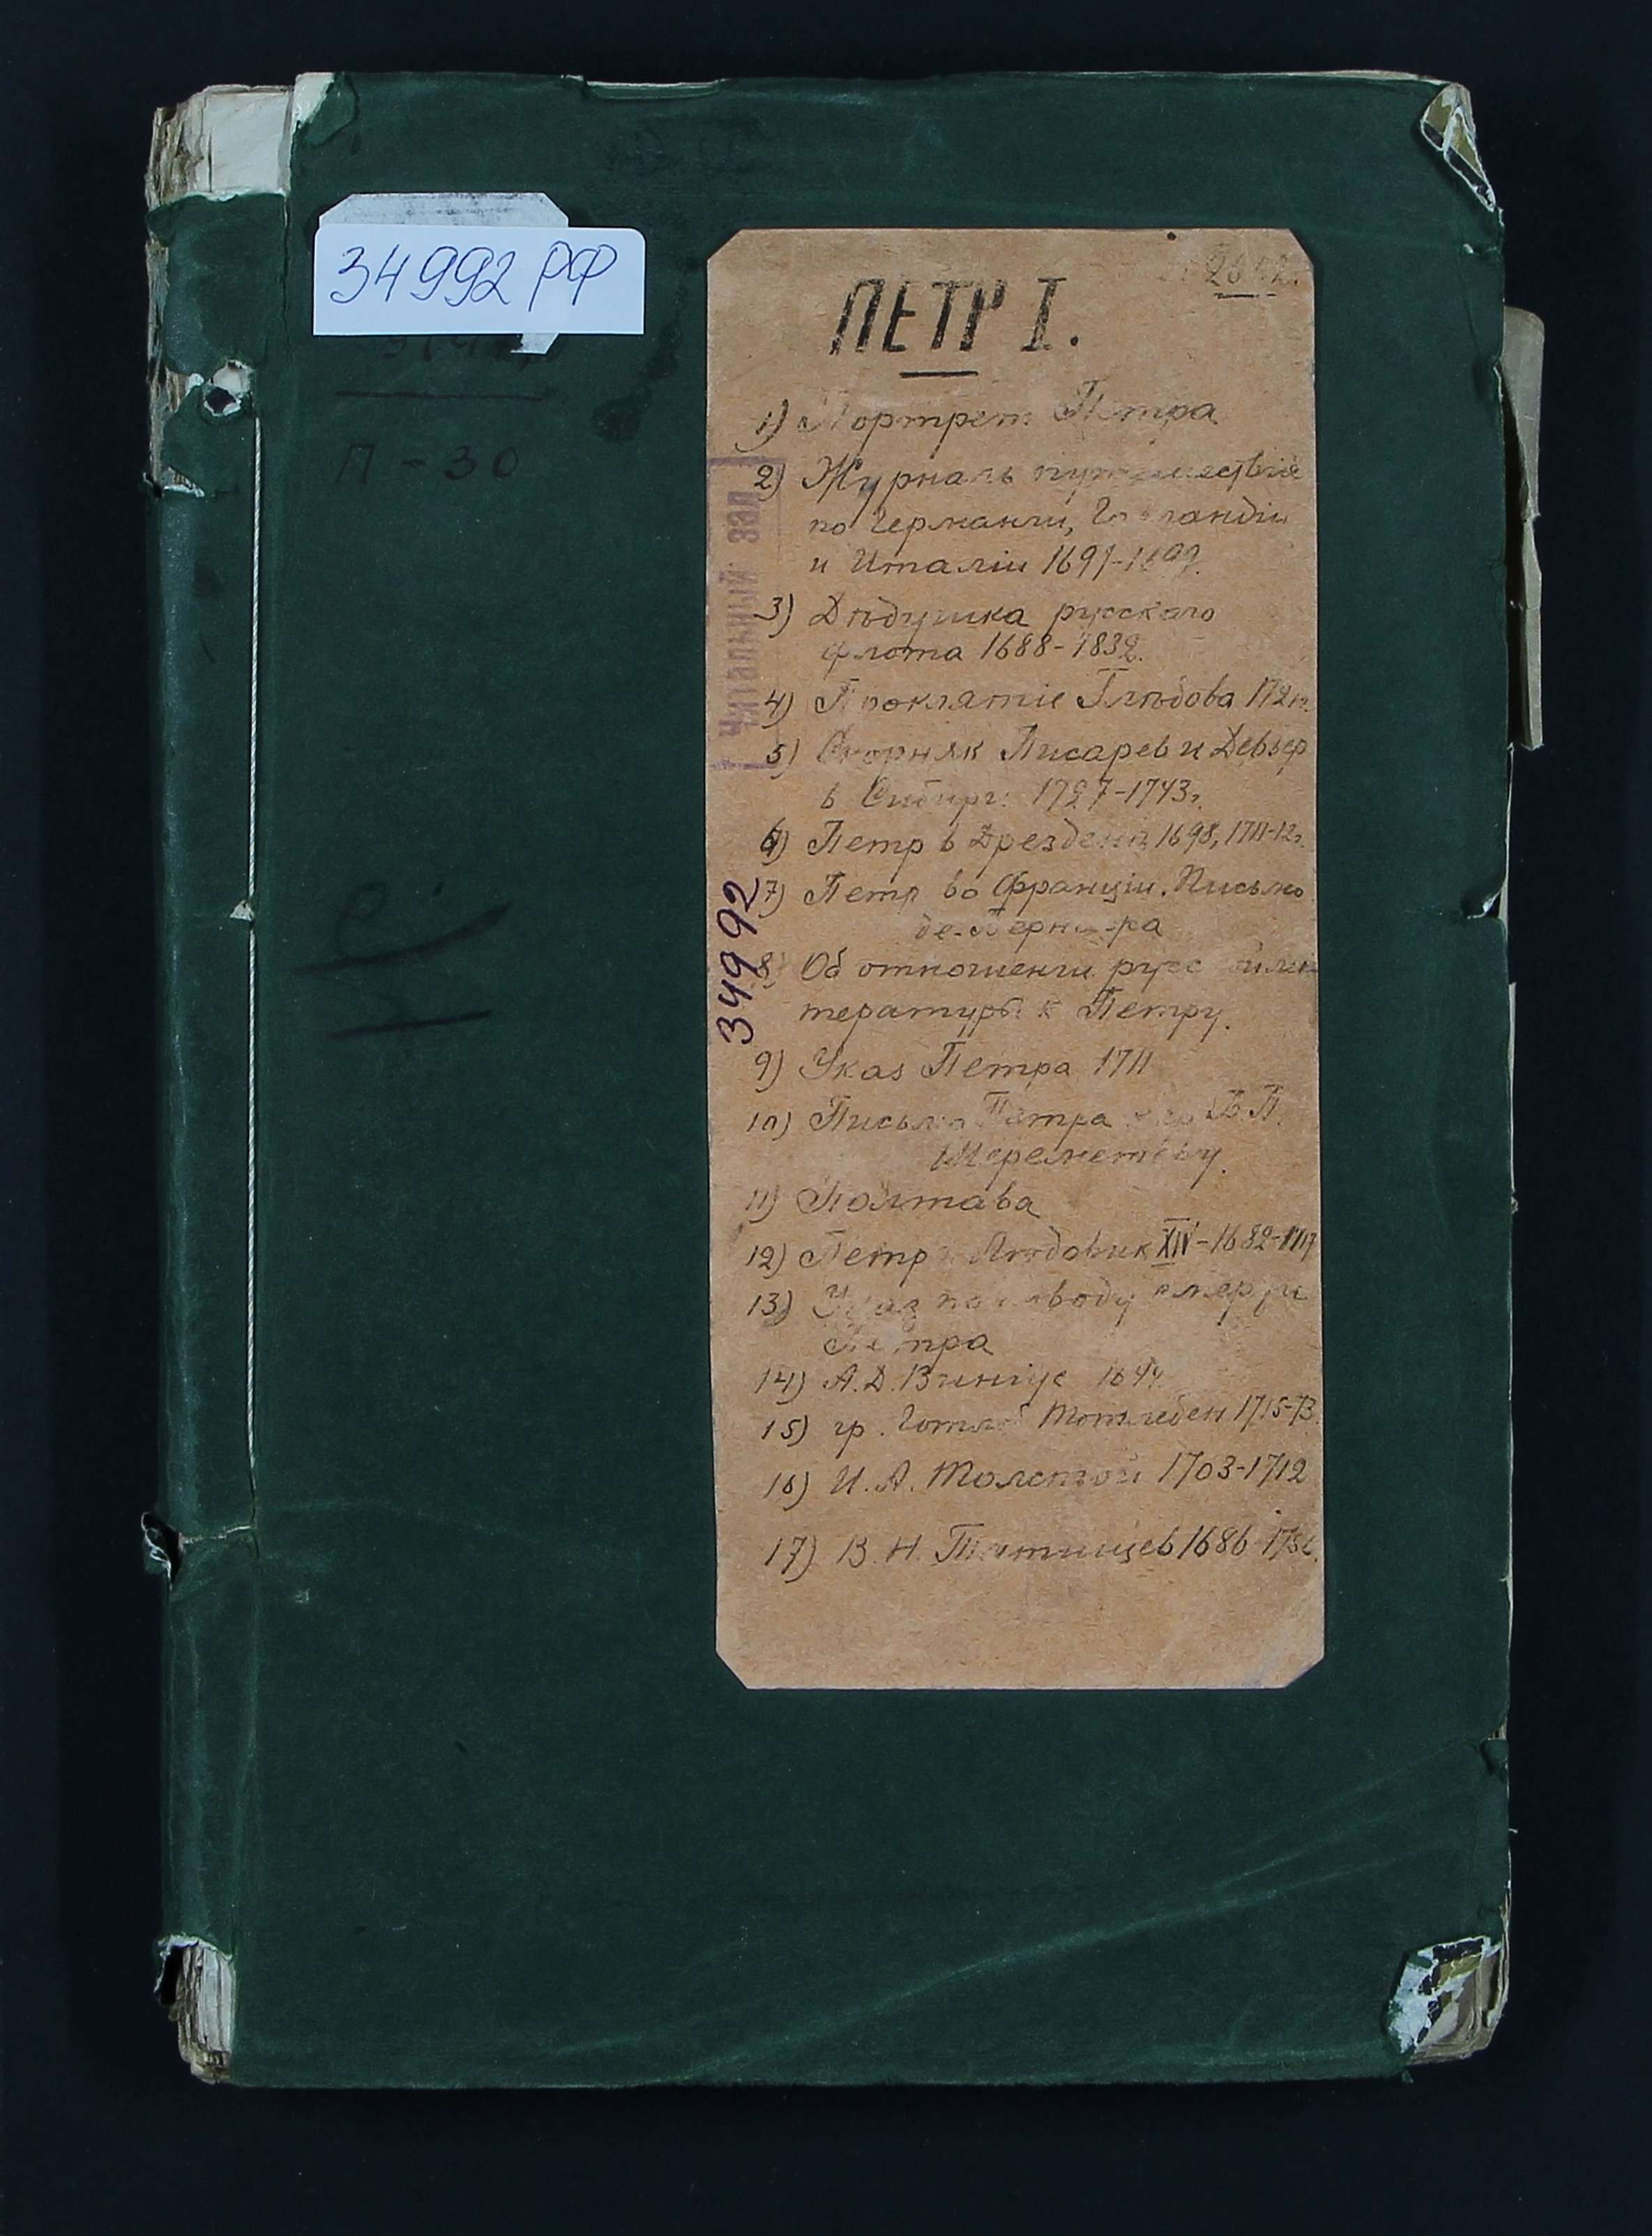 34992 РФ
П-30
ПЕТР I.
1) Портрет Петра
2) Журналъ путешествія
по Германіи, Голландіи
и Италіи 1697-1699.
3) Дѣдушка русскаго
флота 1688-1832.
4) Проклятіе Глѣбова 172 г.
5) Скорняк Писарев и Девьер
в Сибири 1727-1743 г.
6) Петр в Дрездене 1698, 1711-12 г.
7) Петр во Франціи. Письмо
8) Об отношении русской ли
тературы к Петру.
9) Указ Петра 1711
10) Письма Петра Б.П.
Шереметеву.
11) Полтава
12) Петр и Людовик XIV - 1682-1717
13) Указ по поводу смерти
Петра
14) А.Д. Виниус 1644
15) гр. Готлиб Тотлебен 1715-73.
16) И.А. Толстой 1703-1712
17) В.Н. Татищев 1686-
Читальный зал
34992